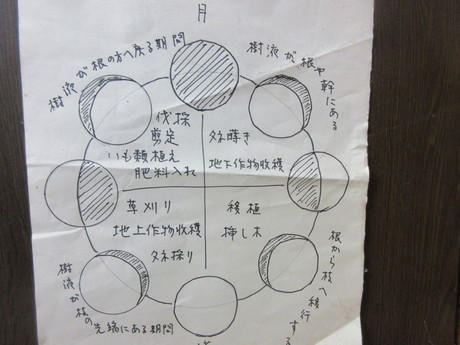 月
樹液が根の方へ戻る期間
樹液が根や幹にある
伐採
剪定
いも類植え
肥料入れ
タネ蒔き
地下作物収穫
草刈り
地上作物収穫
タネ採り
移植
挿し木
樹液が枝の先端にある期間
根から枝へ移行する